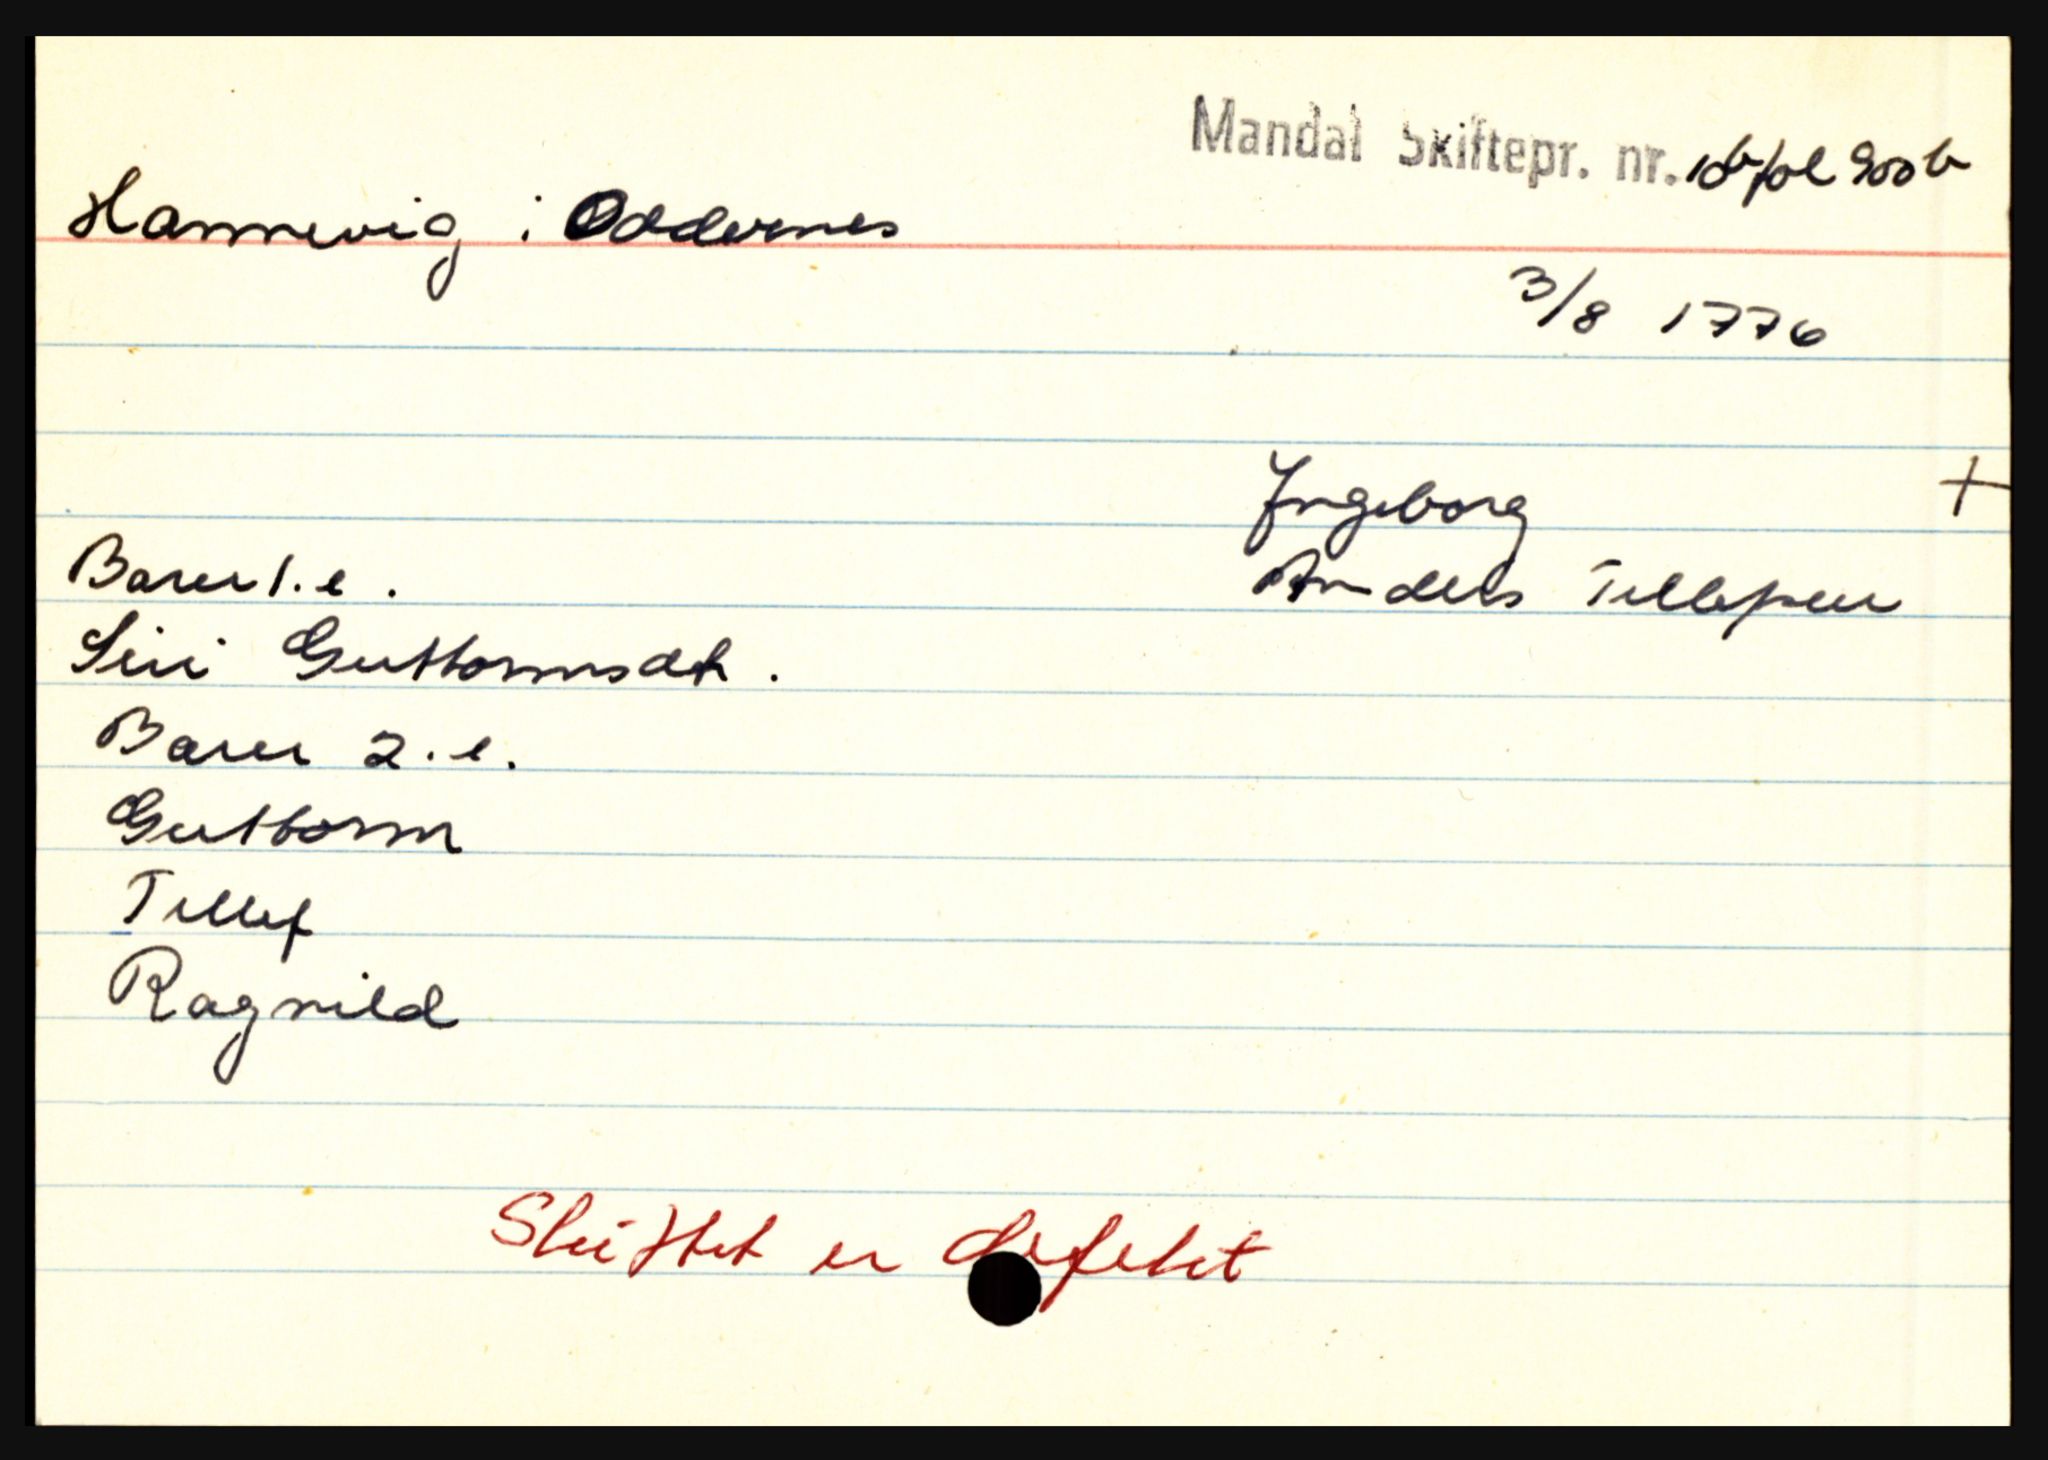 Mandal Skiftepr. nr. 10b fol 900b
Hannevig i Oddernes
3/8 1776
Ingeborg +
Anders Tellefsen
Barn 1. e.
Siri Guttormsdt.
Barn 2. e.
Guttorm
Tellef
Ragnild
Skiftet er defekt